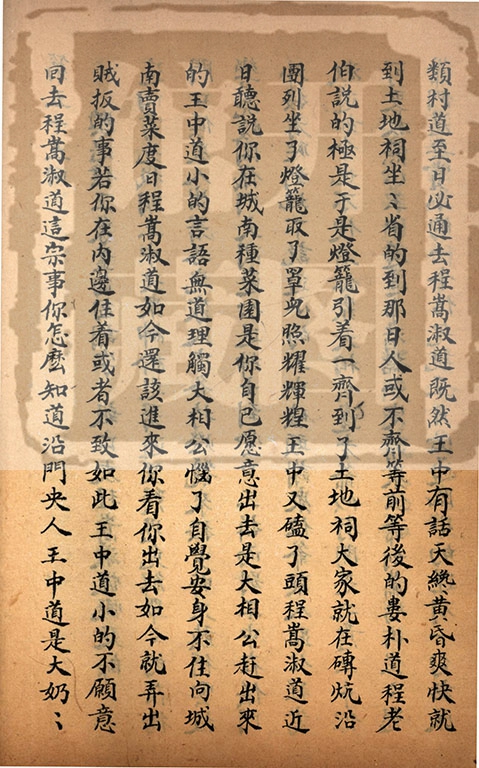 類村道至日必通去程嵩淑道既然王中有話天纔黃昏爽快就
到土地祠坐〻省的到那日人或不齊等前等後的婁朴道程老
伯説的極是于是燈籠引着一齊到了土地祠大家就在磚炕沿
團列坐了燈籠取了罩兒照耀輝煌王中又磕了頭程嵩淑道近
日聽説你在城南種菜園是你自己愿意出去是大相公赶出來
的王中道小的言語無道理觸大相公惱了自覺安身不住向城
南賣菜度日程嵩淑道如今還該進來你看你出去如今就弄出
賊扳的事若你在内邊住着或者不致如此王中道小的不願意
回去程嵩淑道這宗事你怎麽知道沿門央人王中道是大奶〻